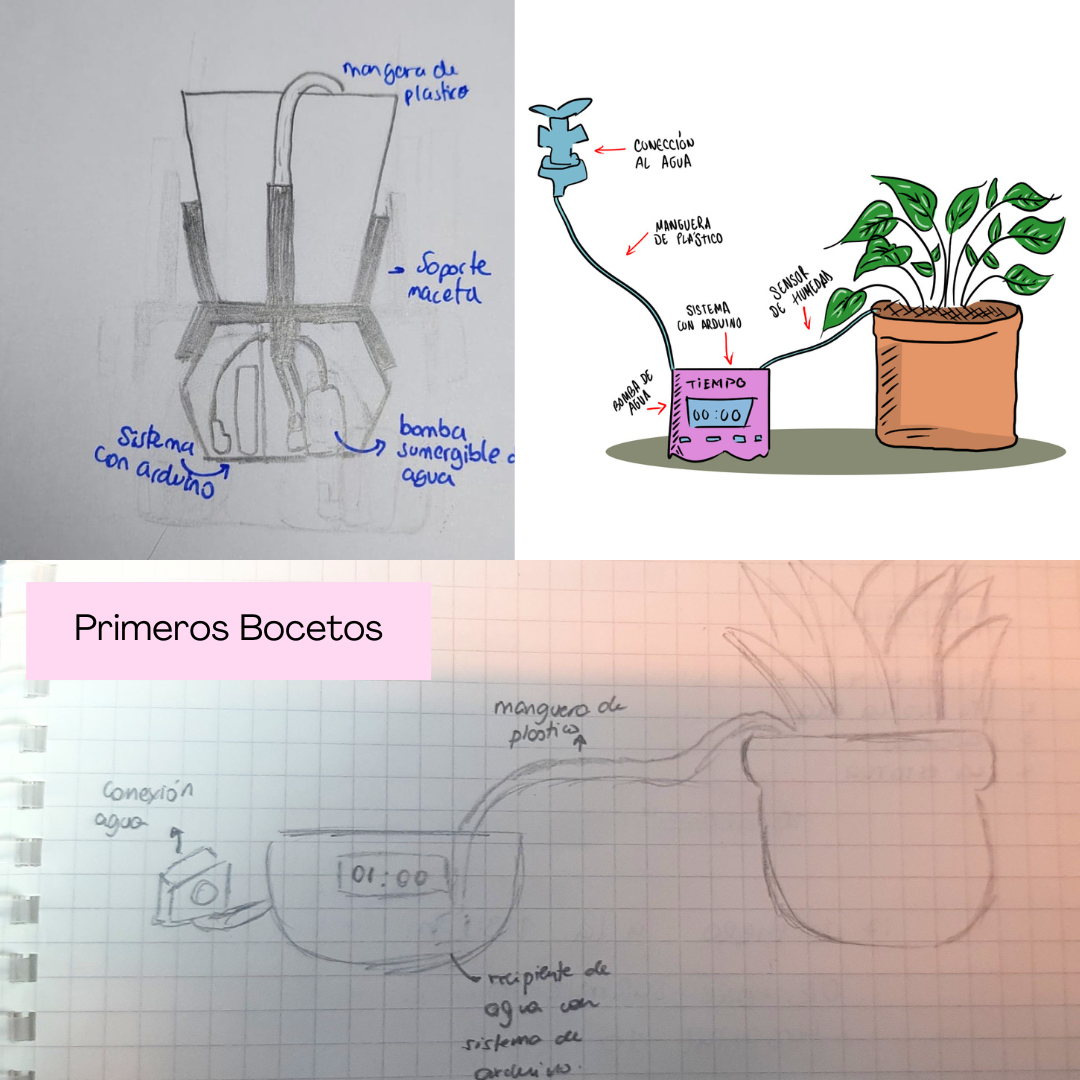 mangera de
plastico
Soporte
maceta
Sistema
con arduino
bomba
sumergible
agua
CONECCIÓN
AL AGUA
MANGUERA
DE PLÁSTICO
SENSOR
DE HUMEDAD
SISTEMA
CON ARDUINO
BOMBA DE
AGUA
TIEMPO
00:00
Primeros Bocetos
manguera de
plastico
conexión
agua
01:00
recipiente de
agua con
sistema de
arduino.